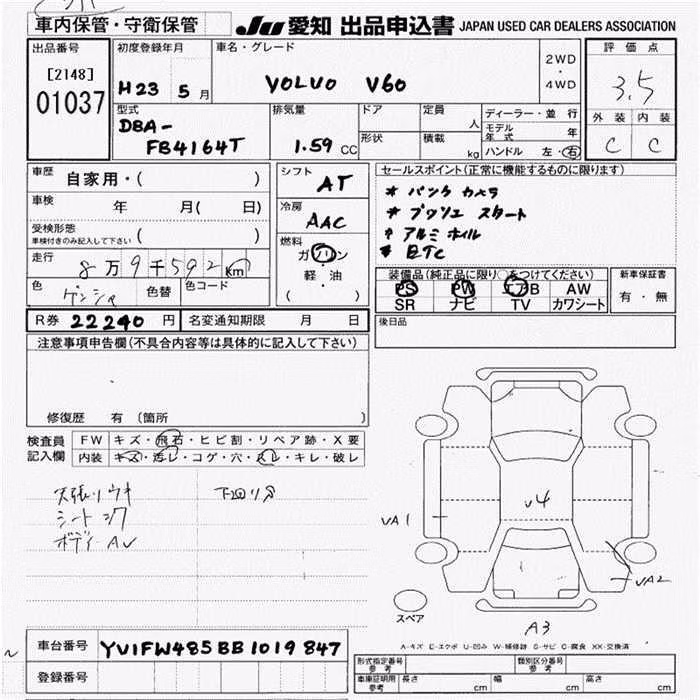 車内保管・守衛保管
JU 愛知 出品申込書 JAPAN USED CAR DEALERS ASSOCIATION
出品番号
[2148]
01037
初度登録年月
H23 5 月
車名・グレード
VOLVO V60
2WD
・
4WD
評価点
3.5
外装 内装
C C
型式
DBA-
FB4164T
排気量
1.59 CC
ドア
形状
定員
人
積載
kg
ディーラー・並行
モデル年式 年
ハンドル 左・右
車歴
自家用・( )
車検 年 月( 日)
受検形態
車検付きのみ記入して下さい ( )
走行
8万9千592Km
色
色替
色コード
シフト
AT
冷房
AAC
燃料
ガソリン
軽・油
( )
セールスポイント(正常に機能するものに限ります)
* バック カメラ
* プッシュ スタート
* アルミ ホイル
* ETC
装備品(純正品に限り○をつけてください)
PS PW エアB AW
SR ナビ TV カワシート
新車保証書
有・無
R券 22240 円
名変通知期限 月 日
後日品
注意事項申告欄(不具合内容等は具体的に記入して下さい)
修復歴 有 (箇所 )
検査員
記入欄
FW キズ・飛石・ヒビ割・リペア跡・X要
内装 キズ・汚レ・コゲ・穴・スレ・キレ・破レ
天張リウキ 下回リ
シート
ボディー AV
v4
VA1
VA2
A3
スペア
A-キズ E-エクボ U-凹み W-補修跡 S-サビ C-腐食 XX-交換済
車台番号 YV1FW485BB1019847
登録番号
形式指定番号
参考
類別区分番号
参考
車庫証明用
参考
長さ cm 幅 cm 高さ cm